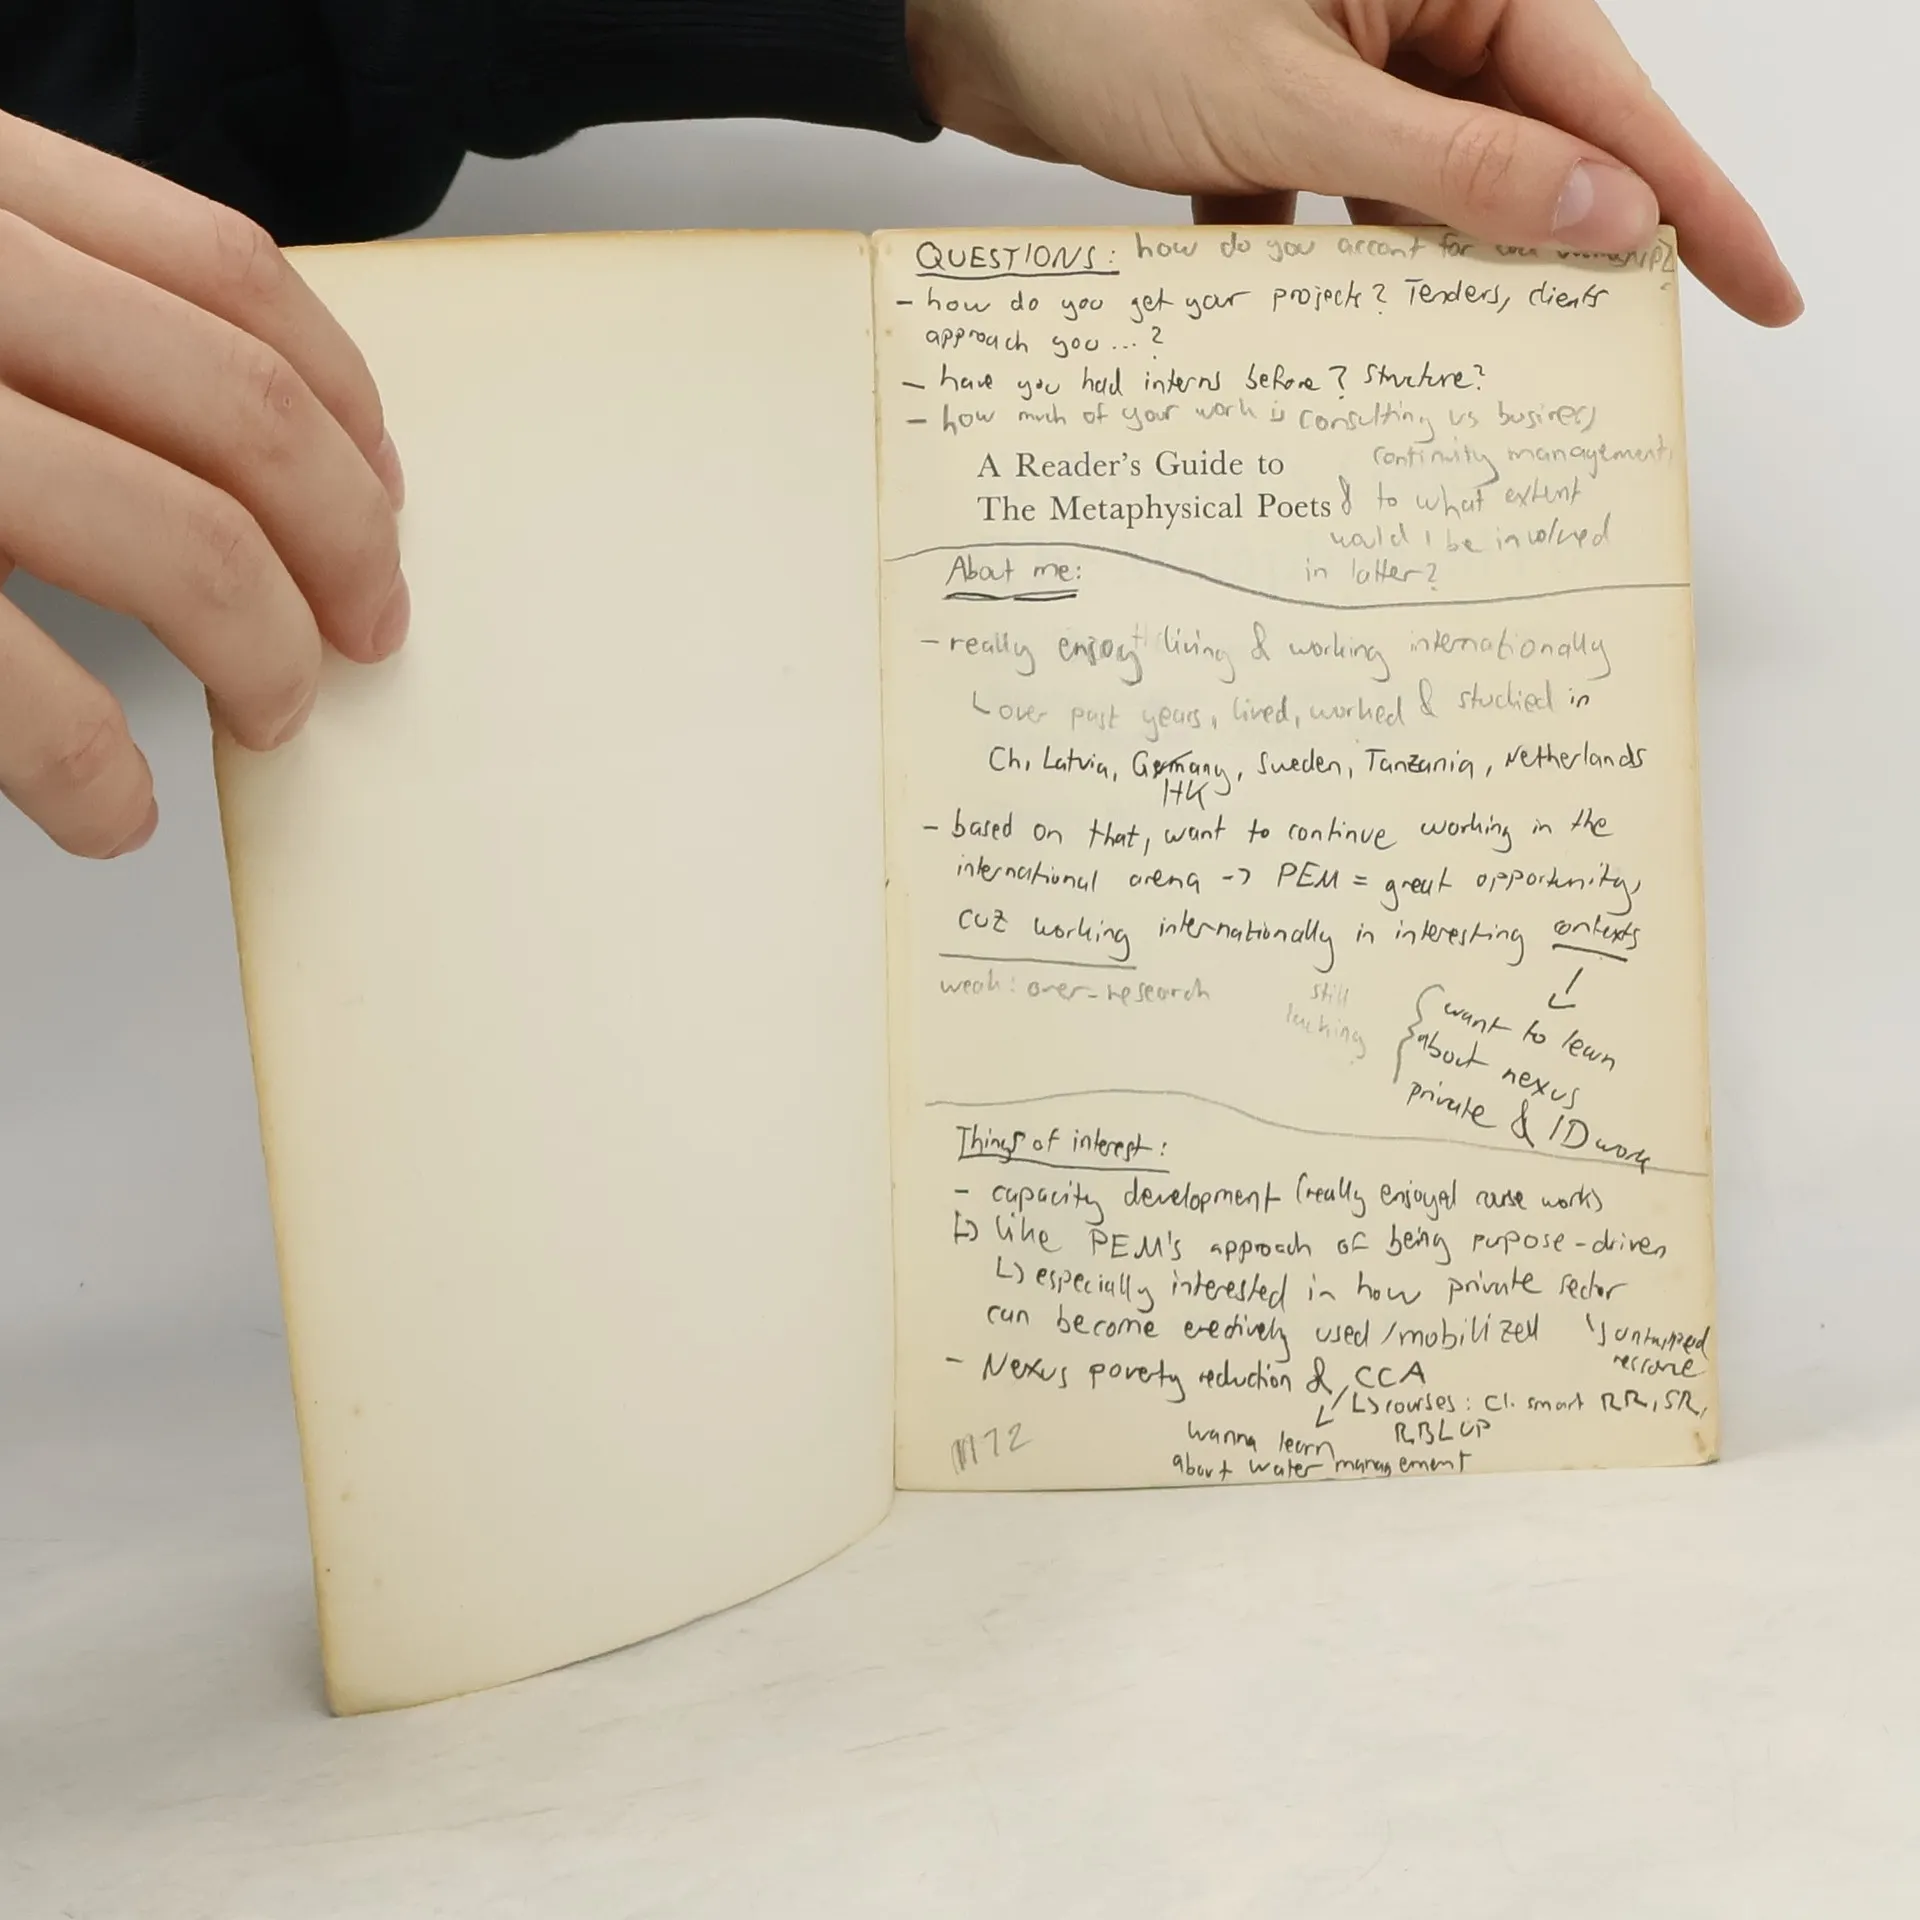 QUESTIONS: how do you account for
- how do you get your projects? Tenders, clients
approach you...?
- have you had interns before? Structure?
- how much of your work is consulting vs business
continuity management
A Reader's Guide to
The Metaphysical Poets
& to what extent
would I be involved
in latter?
About me:
- really enjoy living & working internationally
↳ over past years, lived, worked & studied in
Ch, Latvia, Germany, Sweden, Tanzania, Netherlands
HK
- based on that, want to continue working in the
international arena -> PEM = great opportunity,
cuz working internationally in interesting contexts
weak: over-research
still
lacking
want to learn
about nexus
private & ID work
Things of interest:
- capacity development (really enjoyed course work)
↳ like PEM's approach of being pupose-driven
↳ especially interested in how private sector
can become used/mobilized
↳ untapped
- Nexus poverty reduction & CCA
↳ courses: Cl. smart RR, SR,
RBLUP
wanna learn
about water management